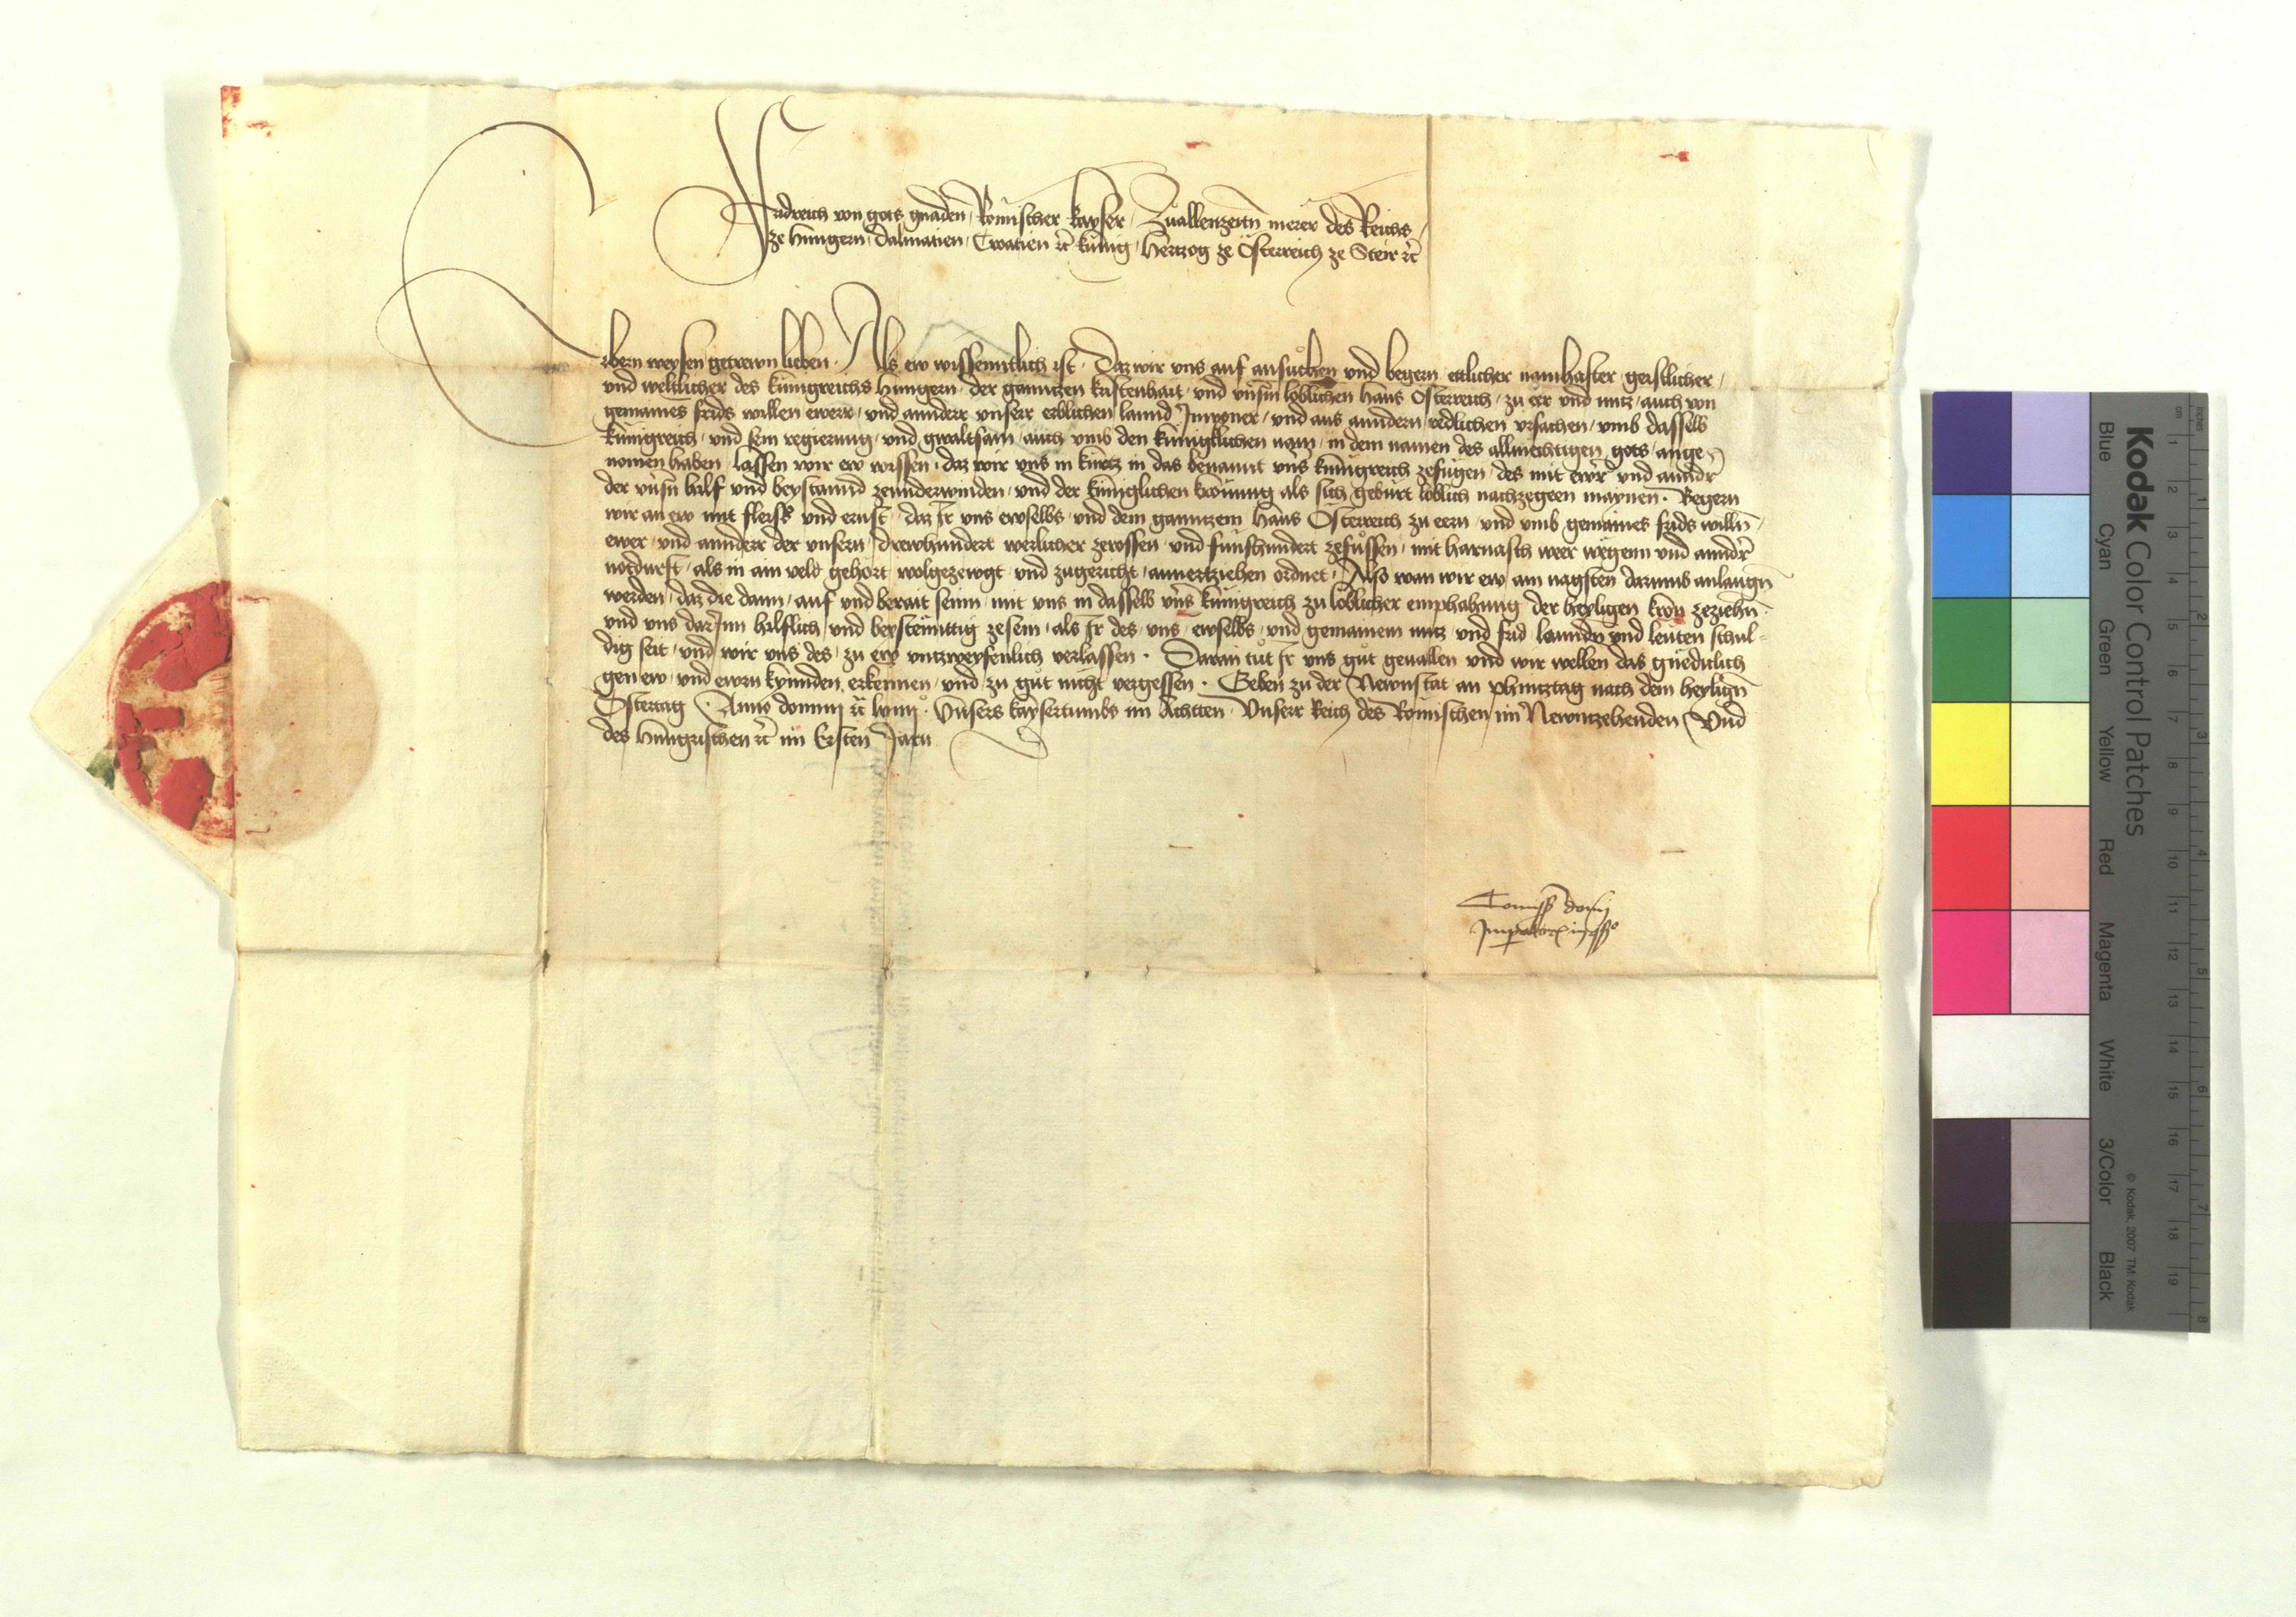 Fridreich von gots gnaden Römischer kayser Zuallenzeitn merer des Reichs
ze Hungern Dalmatien Croatien etc kunig Hertzog ze Österreich ze Steir etc
Erbern weysen getrewn lieben. Als ew wissenntlich ist. Daz wir vns auf ansuchen vnd begern ettlicher namhafter geistlicher
vnd weltlicher des kunigreichs Hungern der ganntzen kristenhait vnd vnsm loblichen Haus Österreich zu eer vnd nutz auch von
gemaines frids willen ewerr vnd annderr vnserr erblichen lannd Inwoner vnd aus anndern redlichen vrsachen vmb dasselb
kunigreich vnd sein regierung vnd gwaltsam auch vmb den kuniglichen nam in dem namen des allmechtigen gots ange
nomen haben lassen wir ew wissen daz wir vns in kurtz in das benannt vns kunigreich zefugen des mit ewr vnd anndr
der vnsn hilf vnd beystannd zevnnderwinden vnd der kuniglichen kronung als sich geburt loblich nachzegeen maynen. Begern
wir an ew mit fleiss vnd ernst daz Ir vns ewselbs vnd dem ganntzem Haus Österreich zu eern vnd vmb gemaines frids willn
ewer vnd annderr der vnsern drewhundert werlicher zerossen vnd funfhundert zefussen mit harnasch weer wegenn vnd anndr
notdurft als in ain veld gehort wolgezewgt vnd zugericht annertziehen ordnet. Also wan wir ew am nagsten darumb anlangn
werden daz die dann auf vnd berait seinn mit vns in dasselb vns kunigreich zu loblicher emphahung der heyligen kron zeziehn
vnd vns darInn hilflich vnd beystenndig zesein als Ir des vns ewselbs vnd gemainem nutz vnd frid lannden vnd leuten schul-
dig seit vnd wir vns des zu ew vntzweyfenlich verlassen. Daran tut Ir vns gut geuallen vnd wir wellen das gnediclich
gen ew vnd ewrn kynnden erkennen vnd zu gut nicht vergessen. Geben zu der Newnstat an phintztag nach dem heylign
Ostertag Anno domini etc lviiij. Vnsers kaysertumbs im Achtten Vnserr Reich des Romischen im Newntzehenden Vnd
des Hungrischen etc im Ersten Jarn
Comissio domini
Imperatoris in consilio
Kodak Color Control Patches
Blue Cyan Green Yellow Red Magenta White 3/Color Black
© Kodak, 2007 TM: Kodak
cm 1 2 3 4 5 6 7 8 9 10 11 12 13 14 15 16 17 18 19
inches 1 2 3 4 5 6 7 8